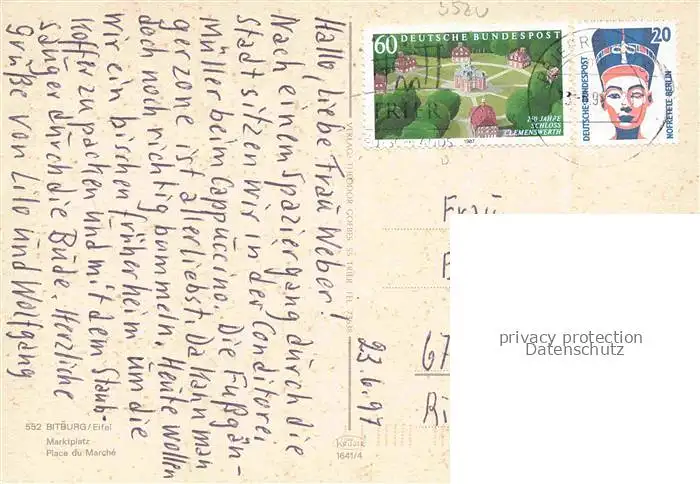 Hallo liebe Frau Weber!
Nach einem Spaziergang durch die
Stadt sitzen wir in der Conditorei
Müller beim Cappuccino. Die Fußgän-
gerzone ist allerliebst. Da kann man
doch noch richtig bummeln. Heute wollen
wir ein bischen früher heim um die
Koffer zu packen und mit dem Staub-
sauger durch die Bude. Herzliche
Grüße von Lilo und Wolfgang
552 BITBURG/Eifel
Marktplatz
Place du Marché
VERLAG THEODOR GORRES 55 TRIER TEL.
Krüger
1641/4
23.6.97
552U
60
DEUTSCHE BUNDESPOST
250 JAHRE
SCHLOSS
CLEMENSWERTH
1987
TRIER
20
DEUTSCHE BUNDESPOST
NOFRETETE BERLIN
Frau
67
Ri
privacy protection
Datenschutz